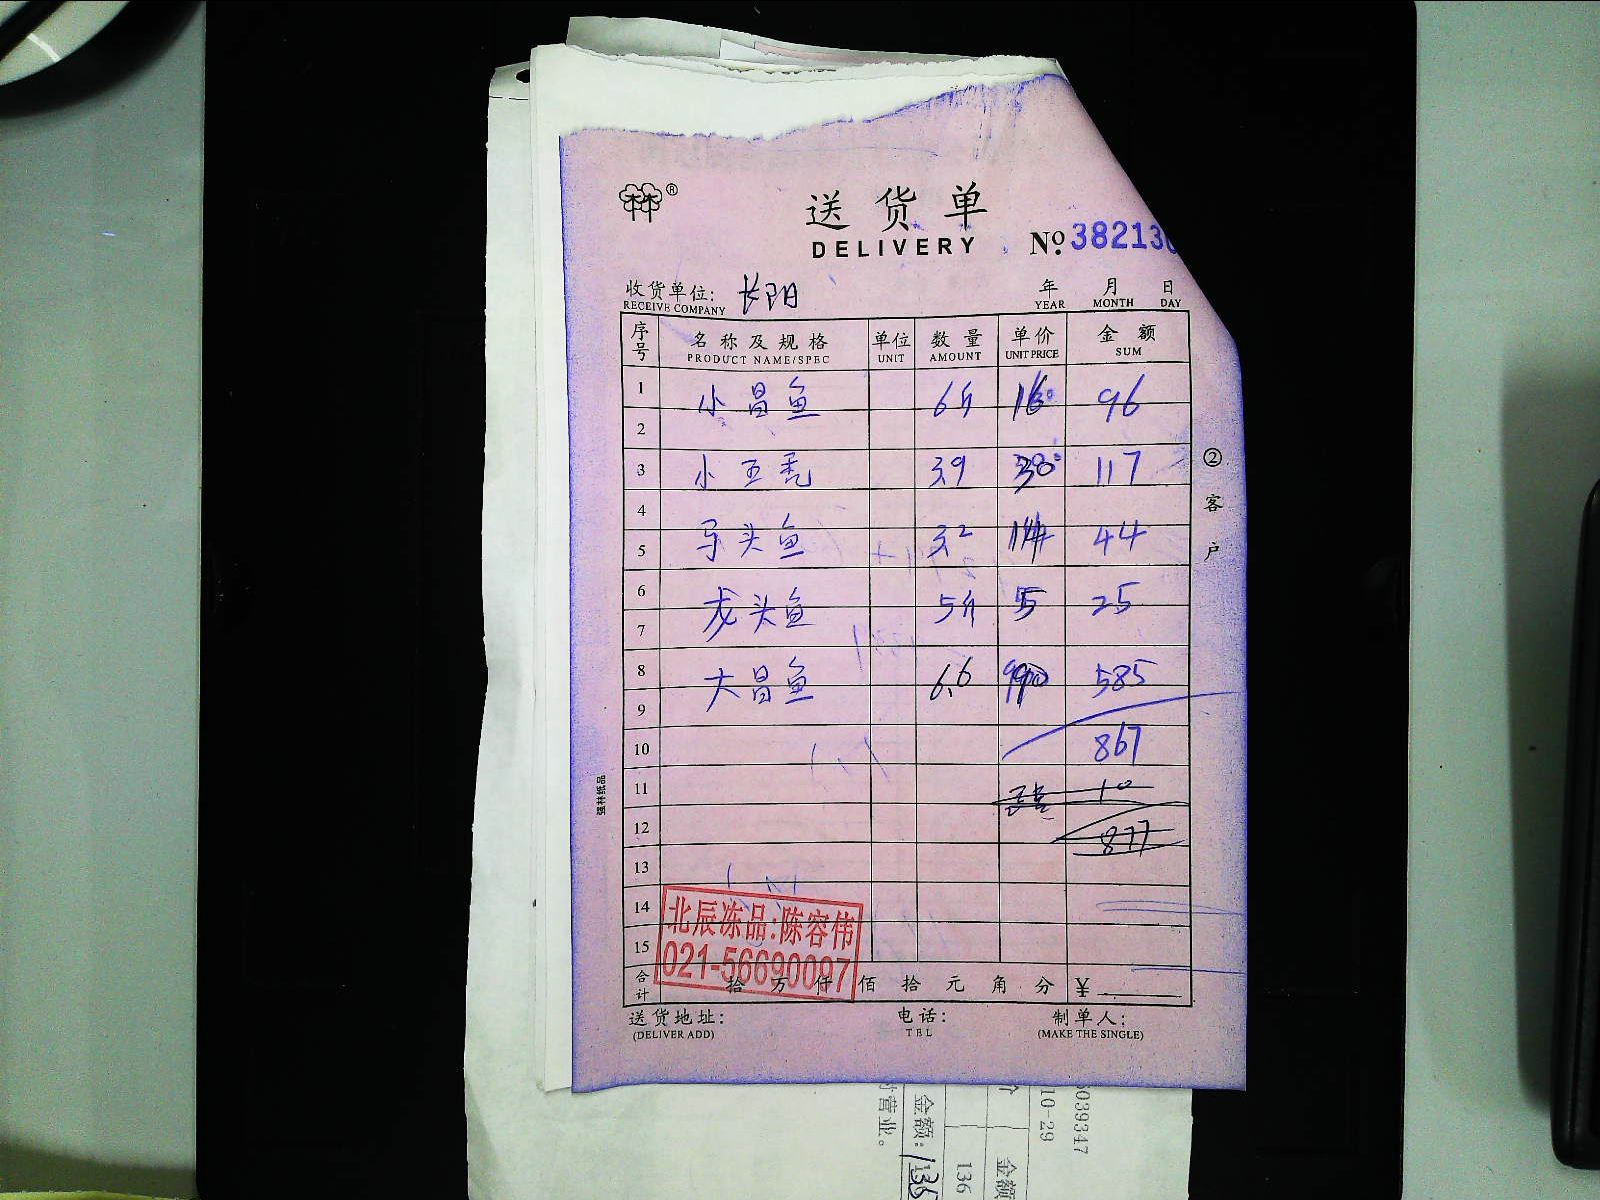 林林®
送货单
DELIVERY
№ 38213
收货单位: 长阳
RECEIVE COMPANY
年 月 日
YEAR MONTH DAY
序号 名称及规格 单位 数量 单价 金额
PRODUCT NAME/SPEC UNIT AMOUNT UNIT PRICE SUM
1 小昌鱼 6斤 16 96
2
3 小五毛 3.9 30 117
4
5 马头鱼 3.2 14 44
6 龙头鱼 5斤 5 25
7
8 大昌鱼 6.6 90 585
9
10 867
11 10
12 877
13
14
15
北辰冻品:陈容伟
021-56690097
合计 拾 万 仟 佰 拾 元 角 分 ¥
送货地址: 电话: 制单人:
(DELIVER ADD) TEL (MAKE THE SINGLE)
②客户
强林纸品
5039347
10-29
金额
136
金额: 136
时营业。